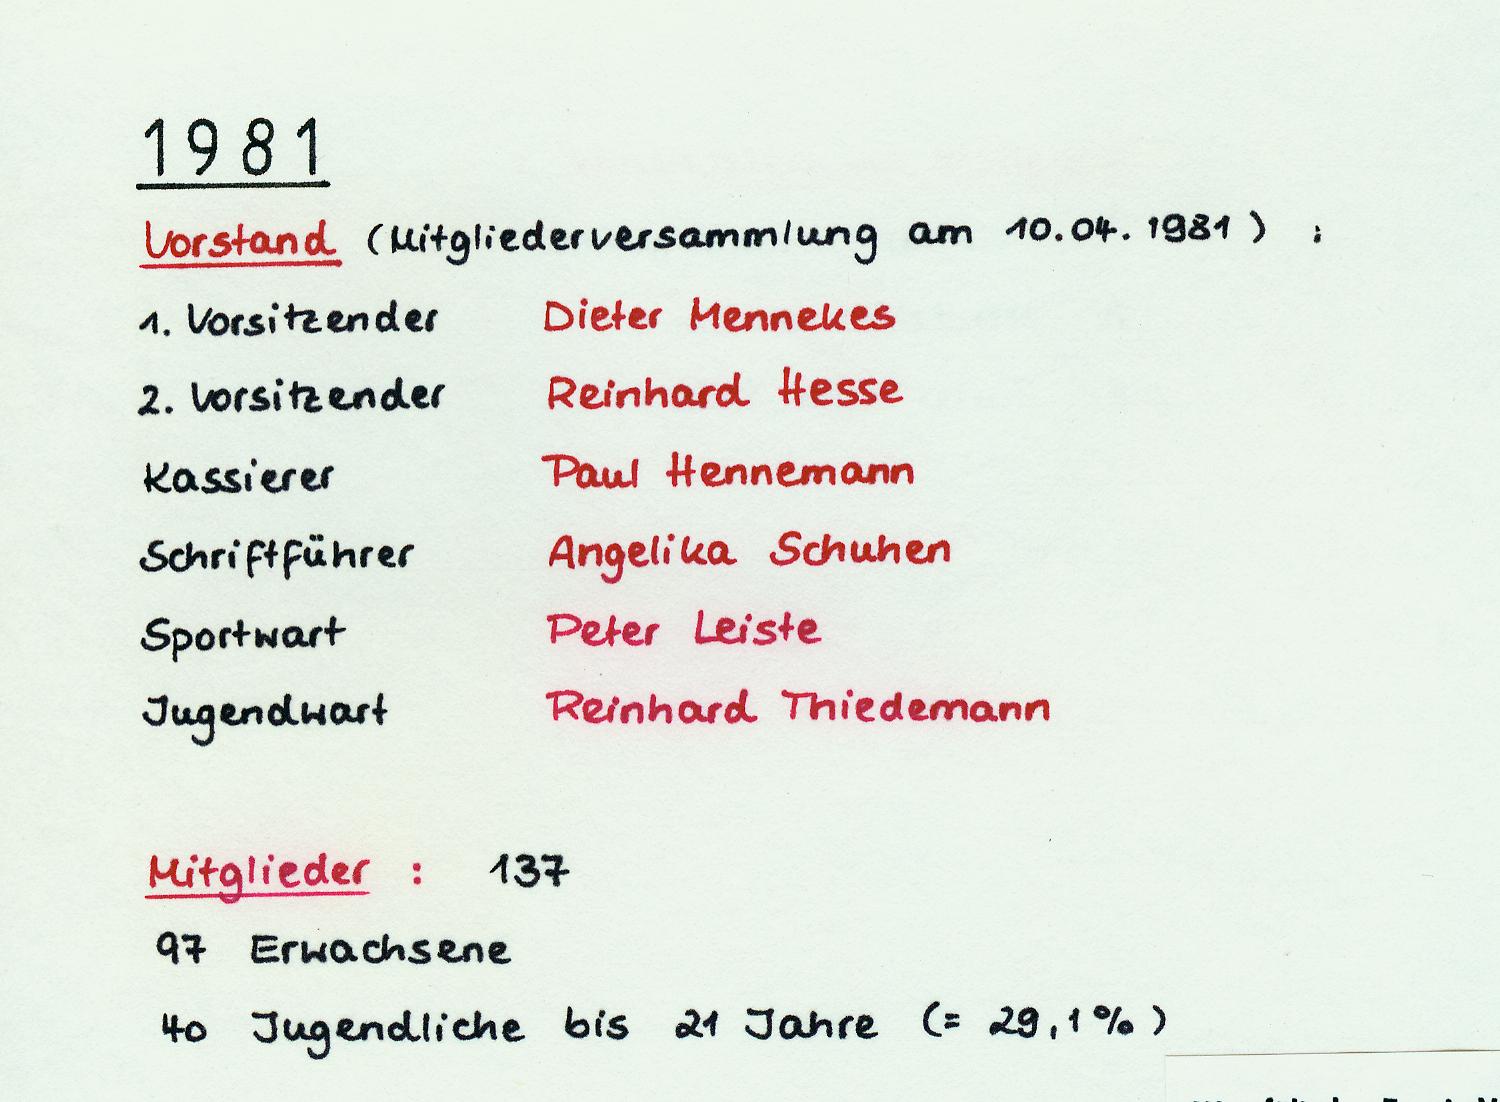 1981
Vorstand (Mitgliederversammlung am 10.04.1981) :
1. Vorsitzender Dieter Mennekes
2. Vorsitzender Reinhard Hesse
Kassierer Paul Hennemann
Schriftführer Angelika Schuhen
Sportwart Peter Leiste
Jugendwart Reinhard Thiedemann
Mitglieder : 137
97 Erwachsene
40 Jugendliche bis 21 Jahre (= 29,1%)